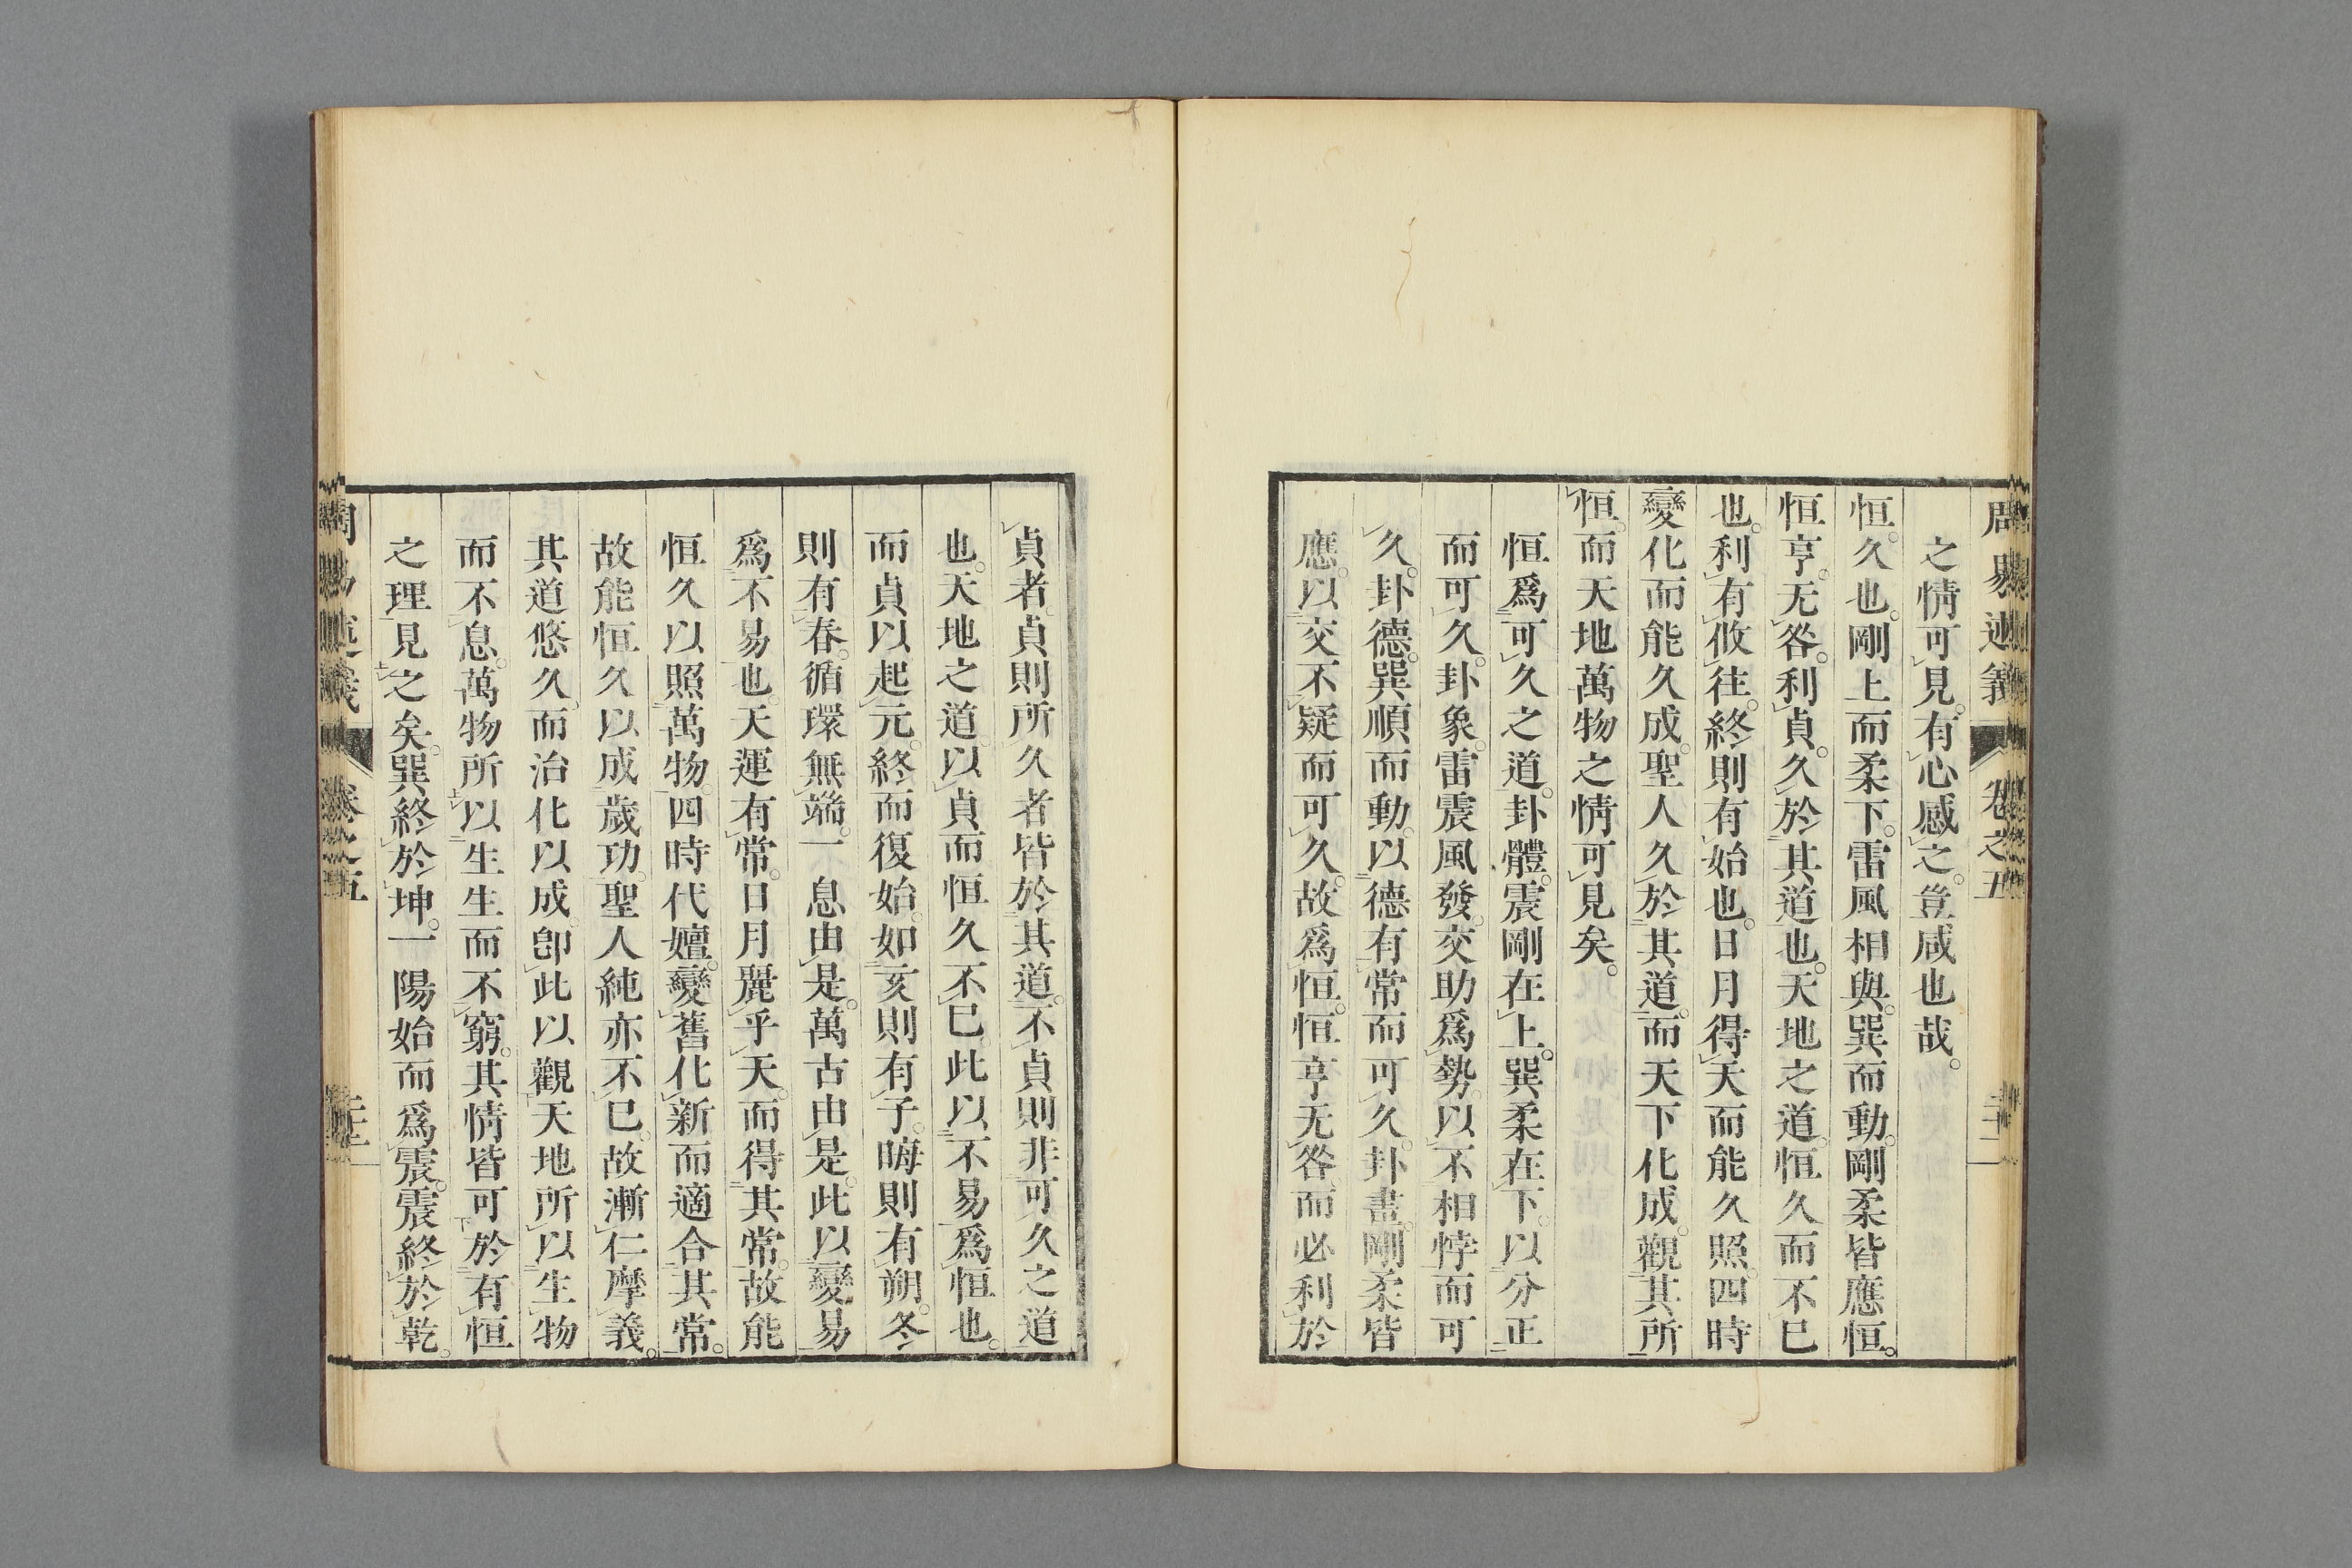 周易述義 卷之五
之情可見。有心感之。豈咸也哉。
恒。久也。剛上而柔下。雷風相與。巽而動。剛柔皆應恒。
恒亨。无咎。利貞。久於其道也。天地之道。恒久而不已
也。利有攸往。終則有始也。日月得天而能久照。四時
變化而能久成。聖人久於其道。而天下化成。觀其所
恒。而天地萬物之情可見矣。
恒爲可久之道。卦體。震剛在上。巽柔在下。以分正
而可久。卦象。雷震風發。交助爲勢。以不相悖而可
久。卦德。巽順而動。以德有常而可久。卦畫。剛柔皆
應。以交不疑而可久。故爲恒。恒亨无咎。而必利於
貞者。貞則所久者皆於其道。不貞則非可久之道
也。天地之道。以貞而恒久不已。此以不易爲恒也。
而貞以起元。終而復始。如亥則有子。晦則有朔。冬
則有春。循環無端。一息由是。萬古由是。此以變易
爲不易也。天運有常。日月麗乎天。而得其常。故能
恒久以照萬物。四時代嬗。變舊化新而適合其常。
故能恒久以成歲功。聖人純亦不已。故漸仁摩義。
其道悠久。而治化以成。卽此以觀天地所以生物
而不息。萬物所以生生而不窮。其情皆可於有恒
之理見之矣。巽終於坤。一陽始而爲震。震終於乾。
周易述義 卷之五